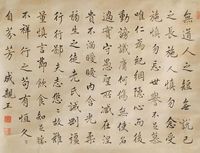 無道人之短無說己
之長施人慎勿念受
施慎勿忘世譽不足慕
唯仁為紀綱隱心而後
動謗議庸何傷無使名
過實守愚聖所臧在涅
貴不淄曖曖內含光柔
弱生之徒老氏誡剛強
行行鄙夫志悠悠故難
量慎言節飲食知足勝
不祥行之苟有恆久久
自芬芳 成親王